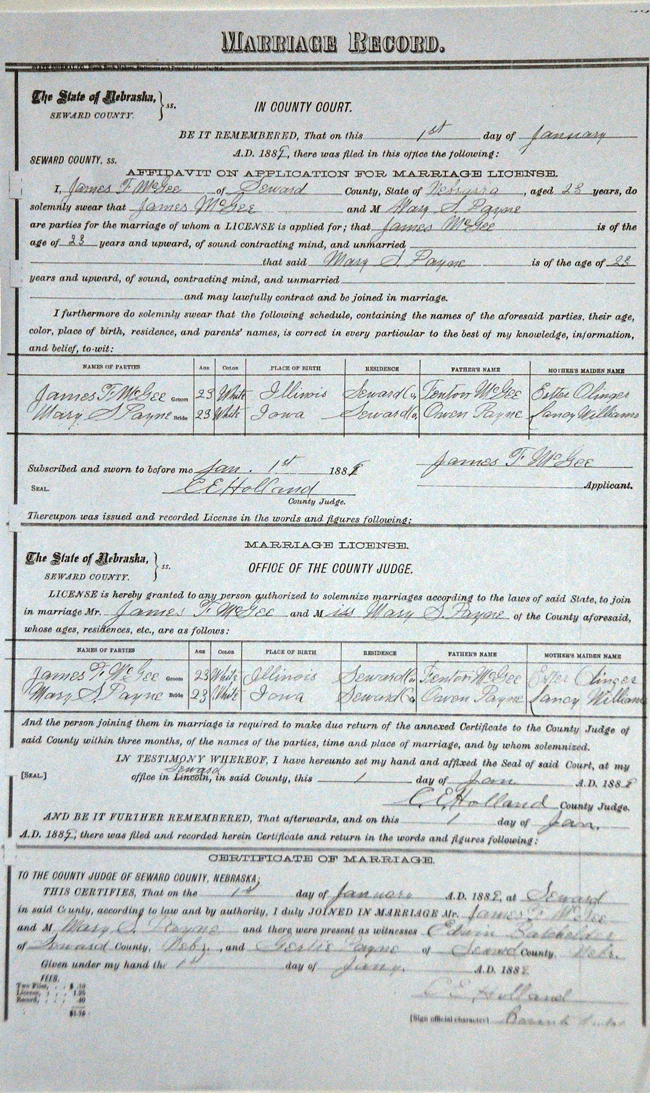 MARRIAGE RECORD.
The State of Nebraska, } ss.
SEWARD COUNTY.
IN COUNTY COURT.
BE IT REMEMBERED, That on this 1st day of January
A.D. 188, there was filed in this office the following:
SEWARD COUNTY, ss.
AFFIDAVIT ON APPLICATION FOR MARRIAGE LICENSE.
I, James F McGee of Seward County, State of Nebraska, aged 23 years, do
solemnly swear that James McGee and M Mary S. Payne
are parties for the marriage of whom a LICENSE is applied for; that James McGee is of the
age of 23 years and upward, of sound contracting mind, and unmarried
that said Mary S. Payne is of the age of 23
years and upward, of sound, contracting mind, and unmarried
and may lawfully contract and be joined in marriage.
I furthermore do solemnly swear that the following schedule, containing the names of the aforesaid parties, their age,
color, place of birth, residence, and parents' names, is correct in every particular to the best of my knowledge, information,
and belief, to-wit:
NAMES OF PARTIES AGE COLOR PLACE OF BIRTH RESIDENCE FATHER'S NAME MOTHER'S MAIDEN NAME
James F. McGee Groom 23 White Illinois Seward Co, Fenton McGee Ester Olinger
Mary S. Payne Bride 23 White Iowa Seward Co, Owen Payne Nancy Williams
Subscribed and sworn to before me Jan. 1st 188 James F McGee
SEAL. C E Holland Applicant.
County Judge.
Thereupon was issued and recorded License in the words and figures following:
MARRIAGE LICENSE.
The State of Nebraska, } ss.
SEWARD COUNTY.
OFFICE OF THE COUNTY JUDGE.
LICENSE is hereby granted to any person authorized to solemnize marriages according to the laws of said State, to join
in marriage Mr. James F. McGee and M iss Mary S. Payne of the County aforesaid,
whose ages, residences, etc., are as follows:
NAMES OF PARTIES AGE COLOR PLACE OF BIRTH RESIDENCE FATHER'S NAME MOTHER'S MAIDEN NAME
James F. McGee Groom 23 White Illinois Seward Co Fenton McGee Ester Olinger
Mary S. Payne Bride 23 White Iowa Seward Co, Owen Payne Nancy Williams
And the person joining them in marriage is required to make due return of the annexed Certificate to the County Judge of
said County within three months, of the names of the parties, time and place of marriage, and by whom solemnized.
IN TESTIMONY WHEREOF, I have hereunto set my hand and affixed the Seal of said Court, at my
Seward
[SEAL.] office in Lincoln, in said County, this 1 day of Jan A.D. 188
C. E. Holland County Judge.
AND BE IT FURTHER REMEMBERED, That afterwards, and on this 1 day of Jan.
A.D. 188, there was filed and recorded herein Certificate and return in the words and figures following:
CERTIFICATE OF MARRIAGE.
TO THE COUNTY JUDGE OF SEWARD COUNTY, NEBRASKA:
THIS CERTIFIES, That on the 1st day of January A.D. 188, at Seward
in said County, according to law and by authority, I duly JOINED IN MARRIAGE Mr. James F McGee
and M Mary S. Payne and there were present as witnesses Edwin Batchelder
of Seward County, Nebr., and Gertie Payne of Seward County, Nebr.
Given under my hand the 1st day of Jany. A.D. 188
FEES.
Two Files, $ .10
License, 1.25
Record, .40
$1.75
C E Holland
[Sign official character]